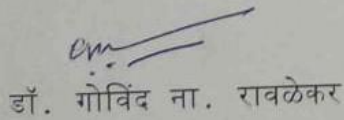 डॉ. गोविंद ना. रावळेकर